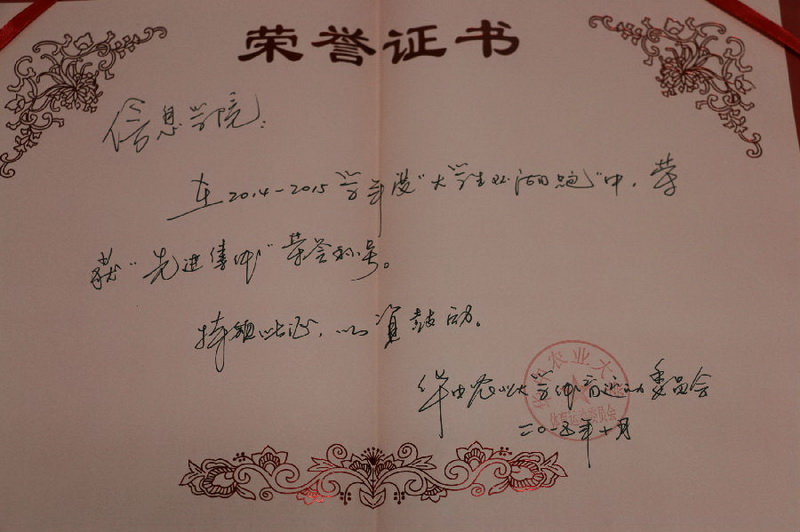 荣誉证书
信息学院:
在2014-2015学年度"大学生环湖跑"中,荣
获"先进集体"荣誉称号。
特颁此证,以资鼓励。
华中农业大学体育运动委员会
二〇一五年十月